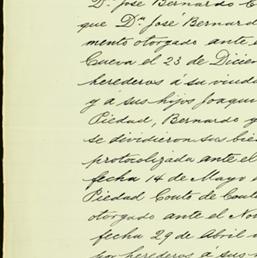 D.ⁿ José Bernardo C
que D.ⁿ José Bernard
mento otorgado ante e
Cueva el 23 de Dicien
herederos á su viud
y á sus hijos Joaqui
Piedad, Bernardo y
se dividieron sus bie
protocolizada ante el
fecha 14 de Mayo
Piedad Couto de Couto
otorgado ante el No
fecha 29 de Abril
por herederos á sus